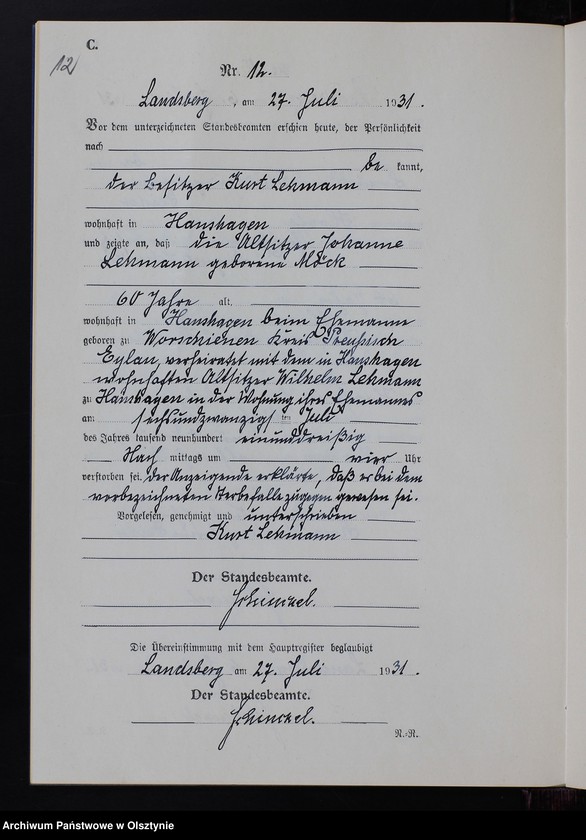 C.
12
Nr. 12.
Landsberg, am 27. Juli 1931.
Vor dem unterzeichneten Standesbeamten erschien heute, der Persönlichkeit
nach
be kannt,
der Besitzer Kurt Lehmann
wohnhaft in Hanshagen
und zeigte an, daß die Altsitzer Johanne
Lehmann geborene Möck
60 Jahre alt,
wohnhaft in Hanshagen beim Ehemanne
geboren zu Worschienen Kreis Preußisch
Eylau, verheiratet mit dem in Hanshagen
wohnhaften Altsitzer Wilhelm Lehmann
zu Hanshagen in der Wohnung ihres Ehemannes
am sechsundzwanzigsten Juli
des Jahres tausend neunhundert einunddreißig
Nach mittags um vier Uhr
verstorben sei. der Anzeigende erklärte, daß er bei dem
vorbezeichneten Sterbefalle zugegen gewesen sei.
Vorgelesen, genehmigt und unterschrieben
Kurt Lehmann
Der Standesbeamte.
Schinckel.
Die Übereinstimmung mit dem Hauptregister beglaubigt
Landsberg am 27. Juli 1931.
Der Standesbeamte.
Schinckel.
N.-N.
Archiwum Państwowe w Olsztynie